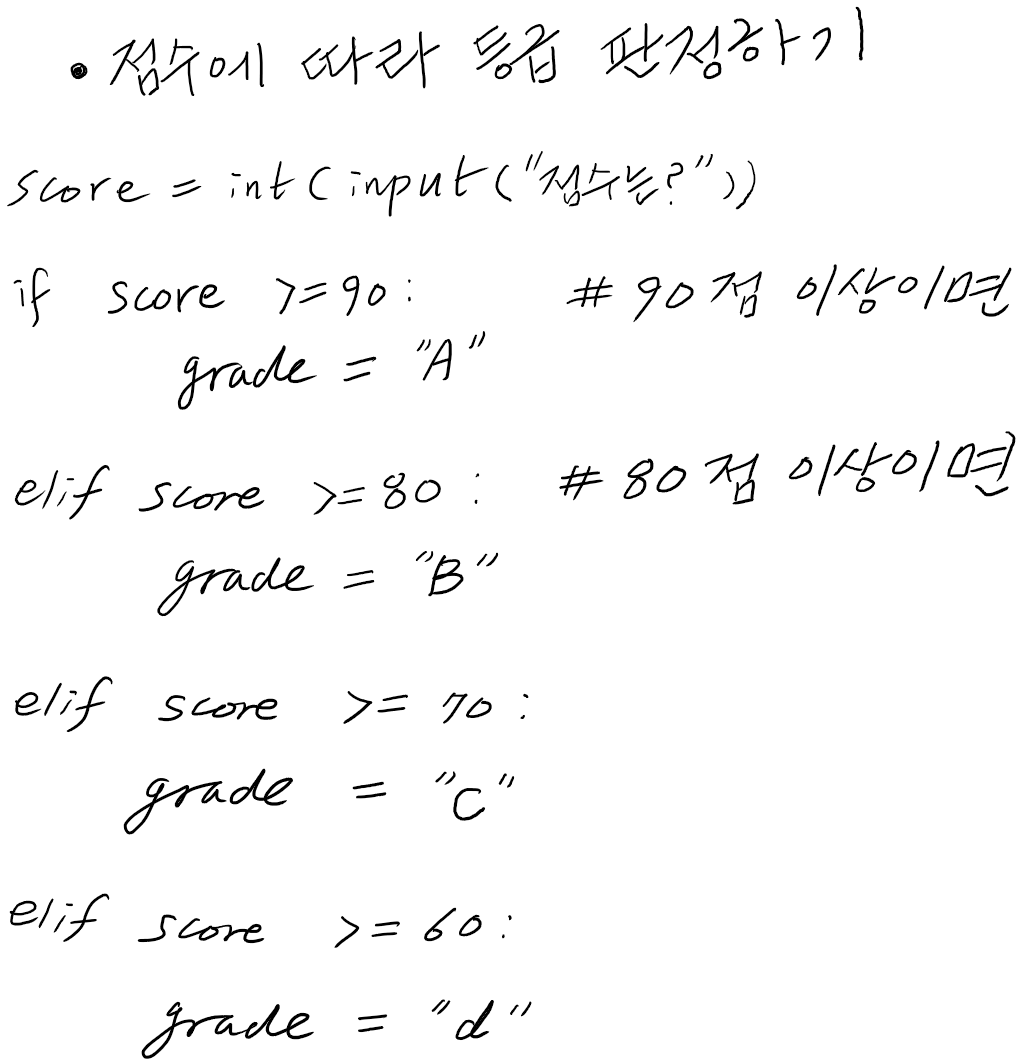 • 점수에 따라 등급 판정하기
score = int(input("점수는?"))
if score >=90: # 90점 이상이면
grade = "A"
elif score >=80: # 80점 이상이면
grade = "B"
elif score >= 70:
grade = "C"
elif score >= 60:
grade = "d"